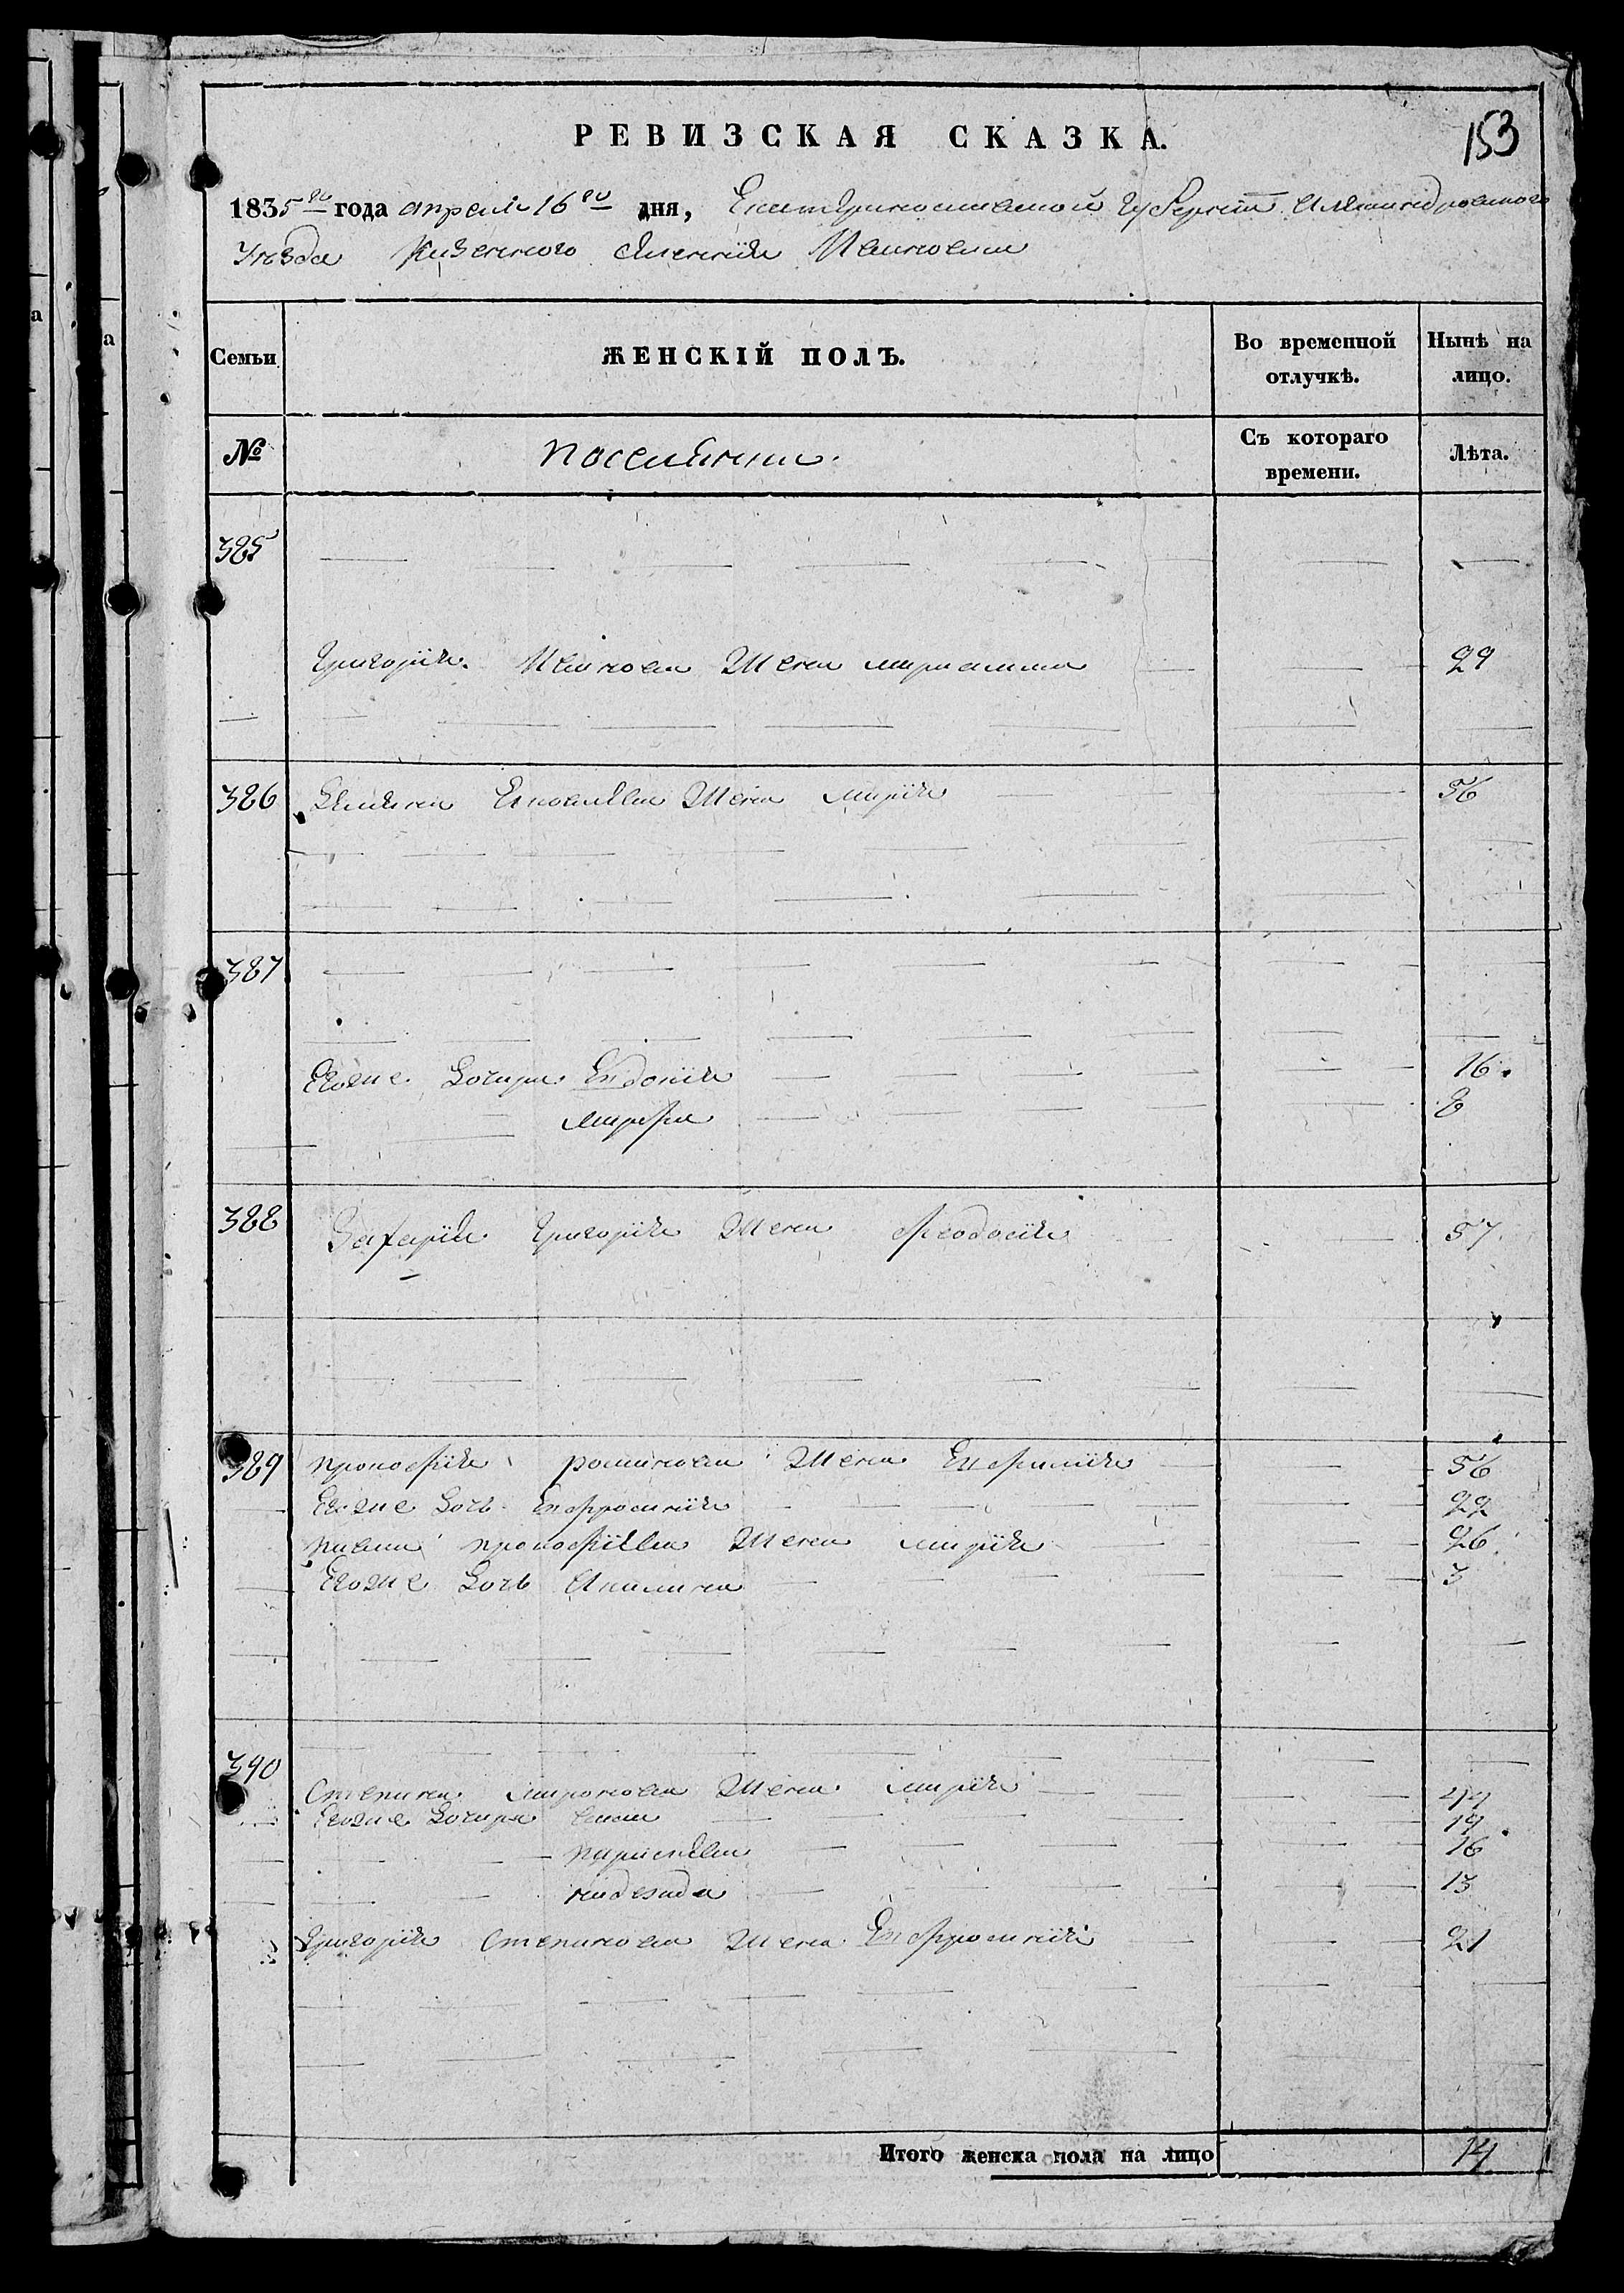 РЕВИЗСКАЯ СКАЗКА.
153
1835го года апреля 16го дня, Екатеринославской Губернии Александровского
Уезда Казенного селения Ивановки
Семьи
ЖЕНСКІЙ ПОЛЪ.
Во временной отлучкѣ.
Нынѣ на лицо.
№
поселянки.
Съ котораго времени.
Лѣта.
385
Григорія Иванова Жена марфа 29
386 Емельяна Жена марія 36
387
Егоже Дочери Евдокія 16
марфа 8
388 Захарія Григорія Жена Феодосія 57
389 прокофія романова Жена Евфимія 56
Егоже Дочь Евфросинія 22
павла прокофіева Жена марія 26
Егоже Дочь Акилина 3
390
Степана миронова Жена марія 44
Егоже Дочери 19
параскева 16
надежда 13
Григорія Степанова Жена Евфросинія 21
Итого женска пола на лицо 14